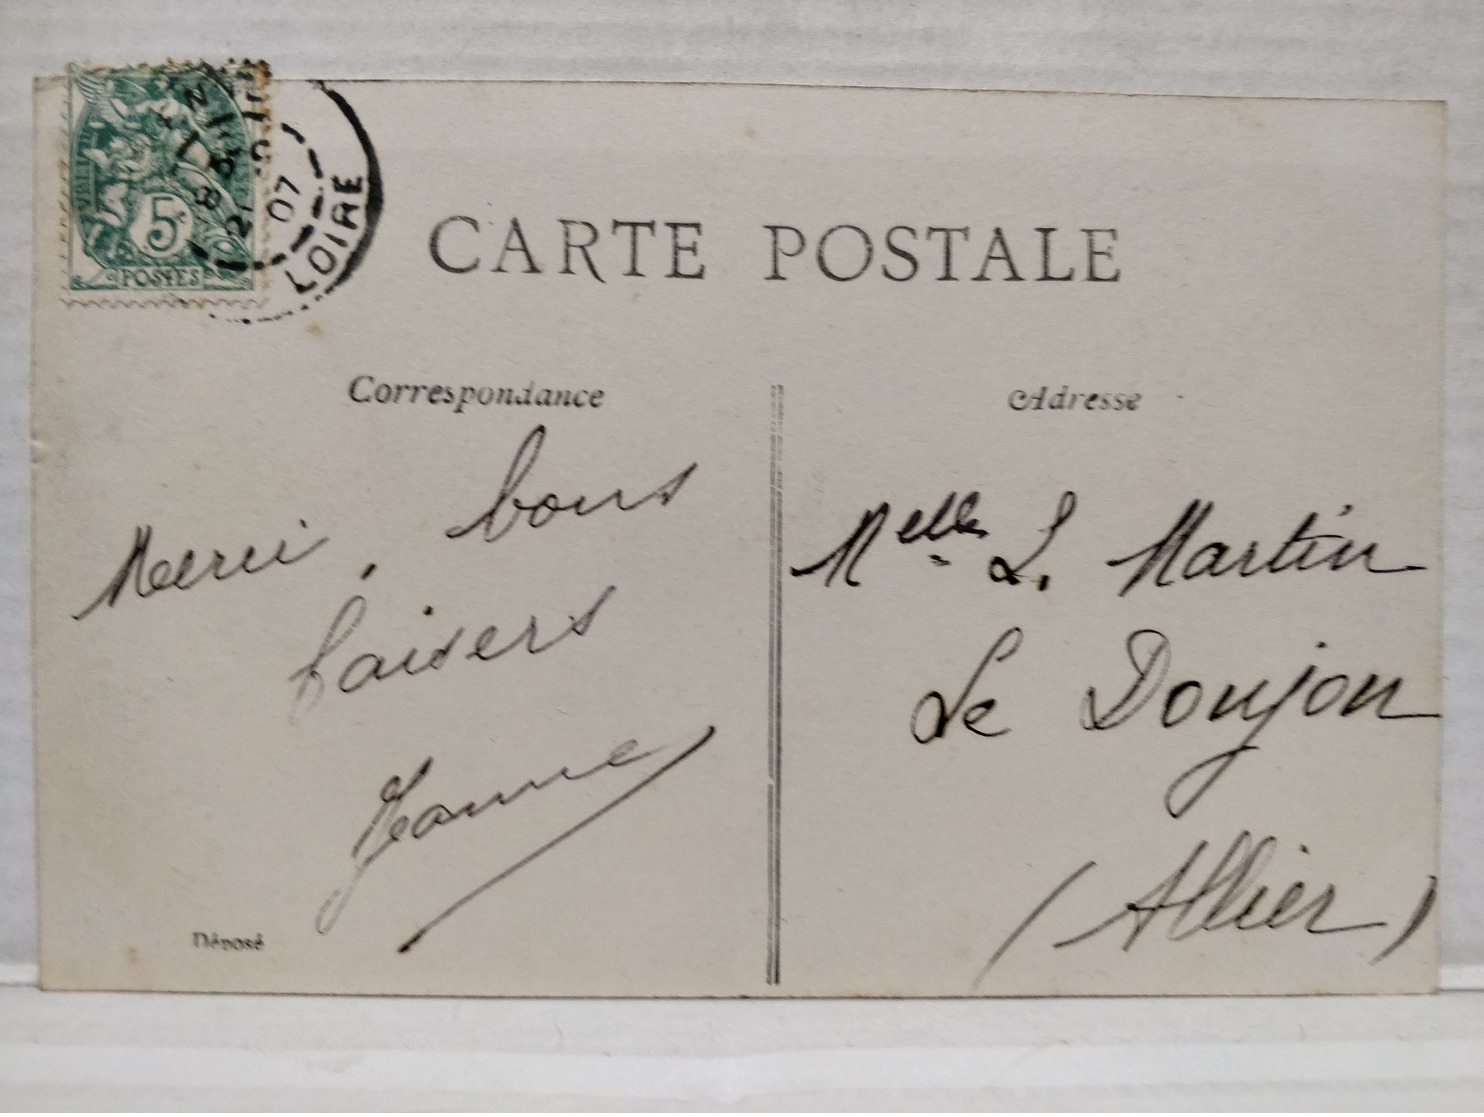 5c
POSTES
21
07
LOIRE
CARTE POSTALE
Correspondance
Adresse
Merci, bons
baisers
Jeanne
Melle L. Martin
Le Donjon
(Allier)
Déposé